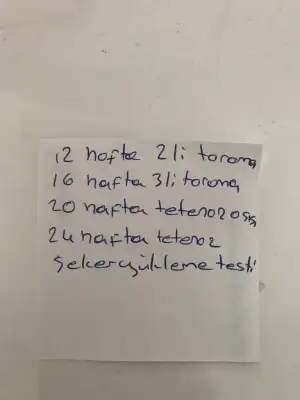 12 hafta 2li tarama
16 hafta 3li tarama
20 hafta tetenoz aşı
24 hafta tetenoz
Şekeryükleme testi